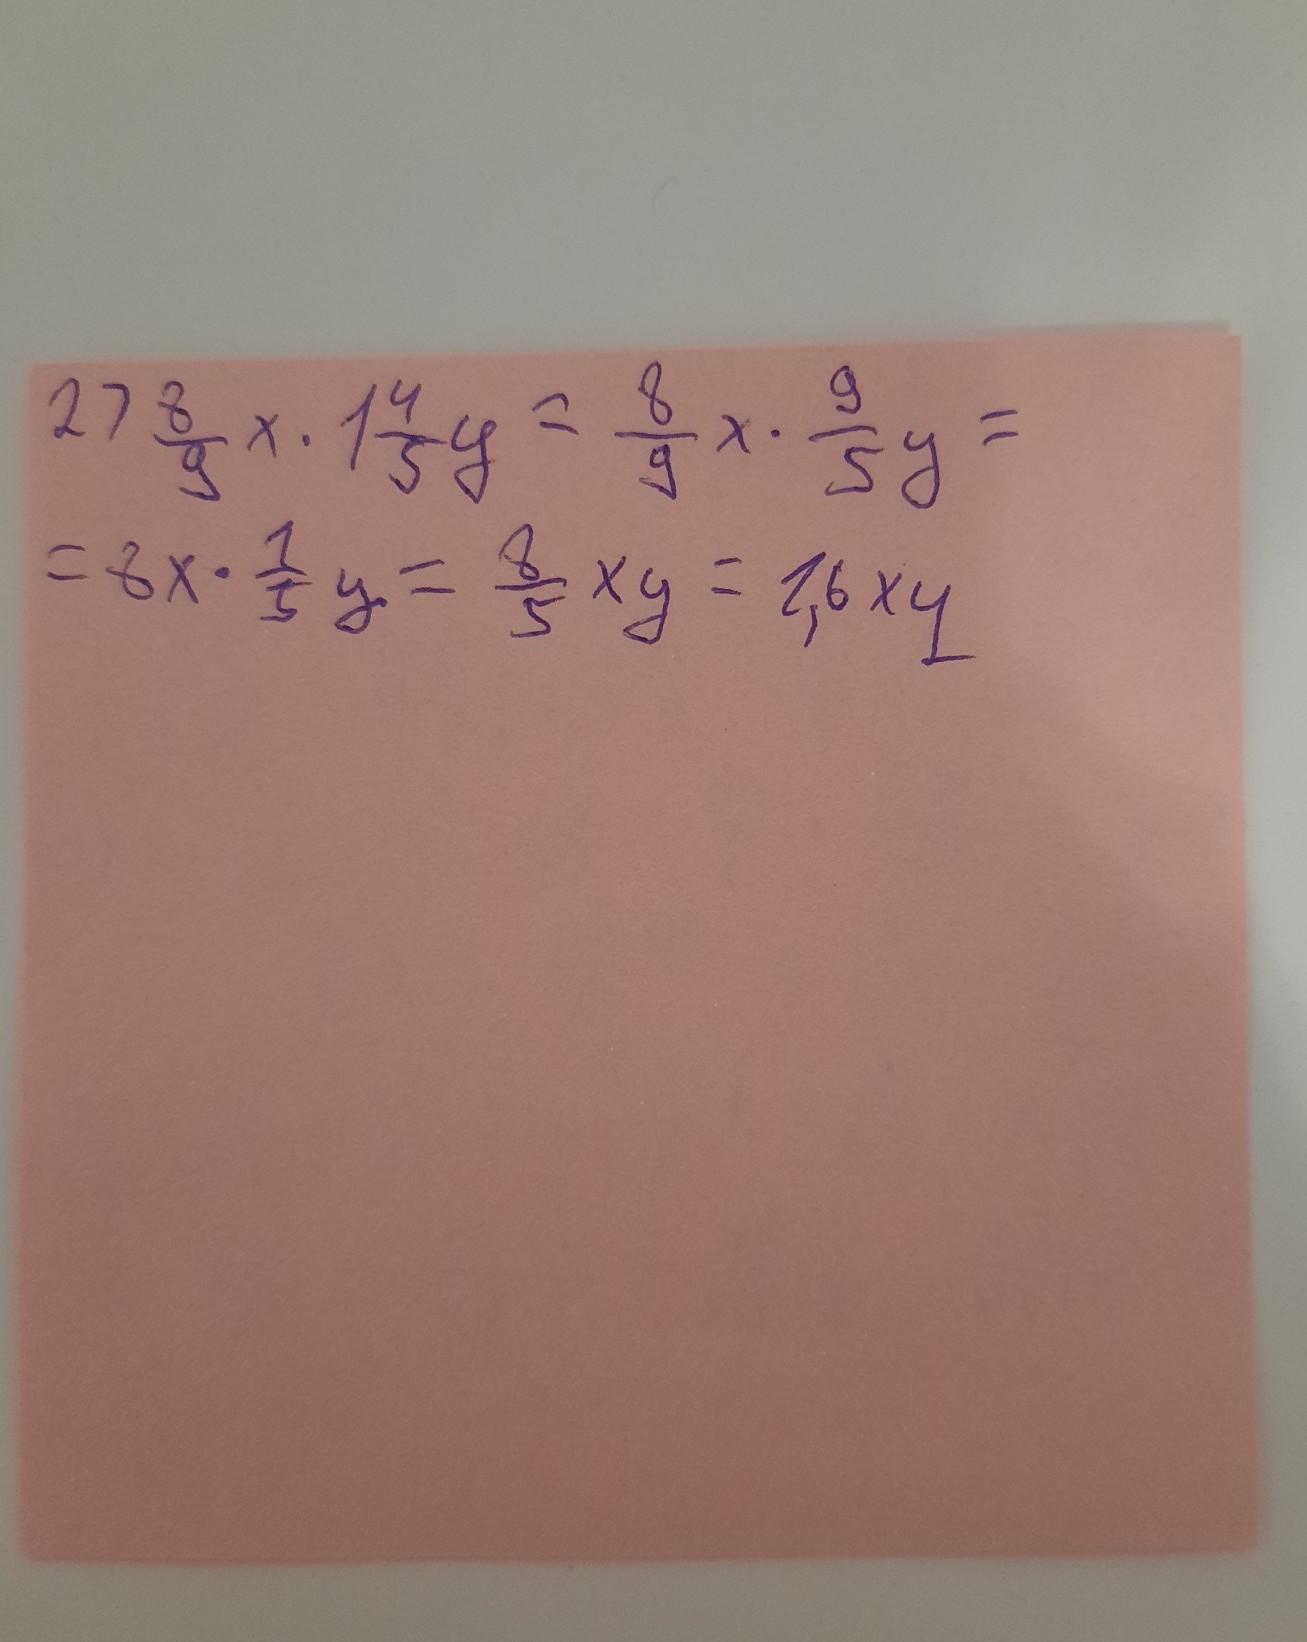 27 8/9 x · 1 4/5 y = 8/9 x · 9/5 y =
= 8x · 1/5 y = 8/5 xy = 1,6 xy